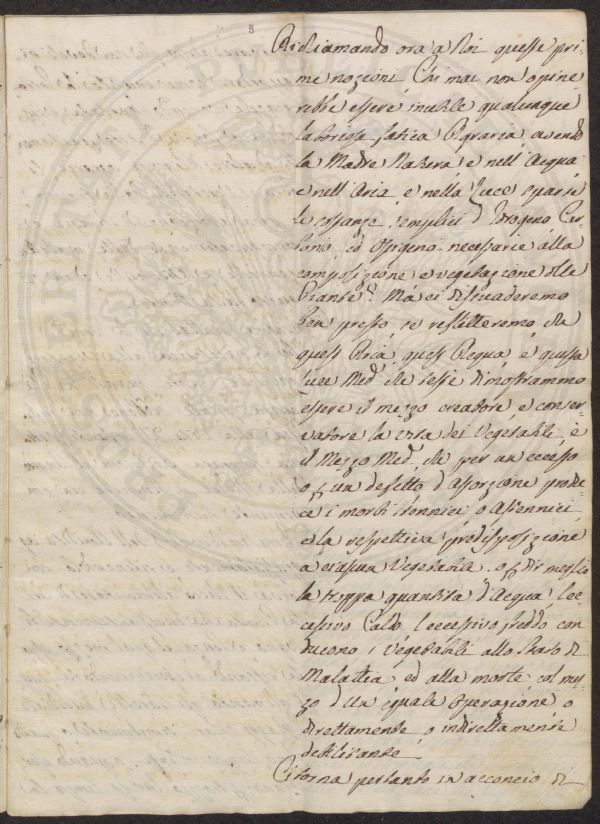 8
Richiamando ora a Noi queste pri-
me nozioni. Chi mai non opine-
rebbe essere inutile qualunque
laboriosa fatica Agraria, avendo
la Madre Natura, e nell'Acqua
e nell'Aria, e nella Luce sparse
le sostanze semplici d'Idrogeno Car-
bonio, ed Ossigeno necessarie alla
composizione e vegetazione delle
Piante? Ma ci dissuaderemo
ben presto se rifletteremo, che
quest'Aria, quest'Acqua, e questa
Luce Med. che tesse dimostrammo
essere il mezzo creatore, e conser-
vatore la vita dei Vegetabili, è
il Mezzo Med. che per un eccesso
o p un difetto d'Assorzione produ-
ce i morbi stennici, o Astennici
e la respettiva predisposizione
a ciascun Vegetabile. o p dir meglio
la troppa quantità d'Acqua, l'ec-
cessivo Caldo l'eccessivo freddo con-
ducono i Vegetabili allo Stato di
Malattia, ed alla morte col mez-
zo d'un eguale Operazione, o
direttamente, o indirettamente
debilitante.
Ci torna pertanto in acconcio di